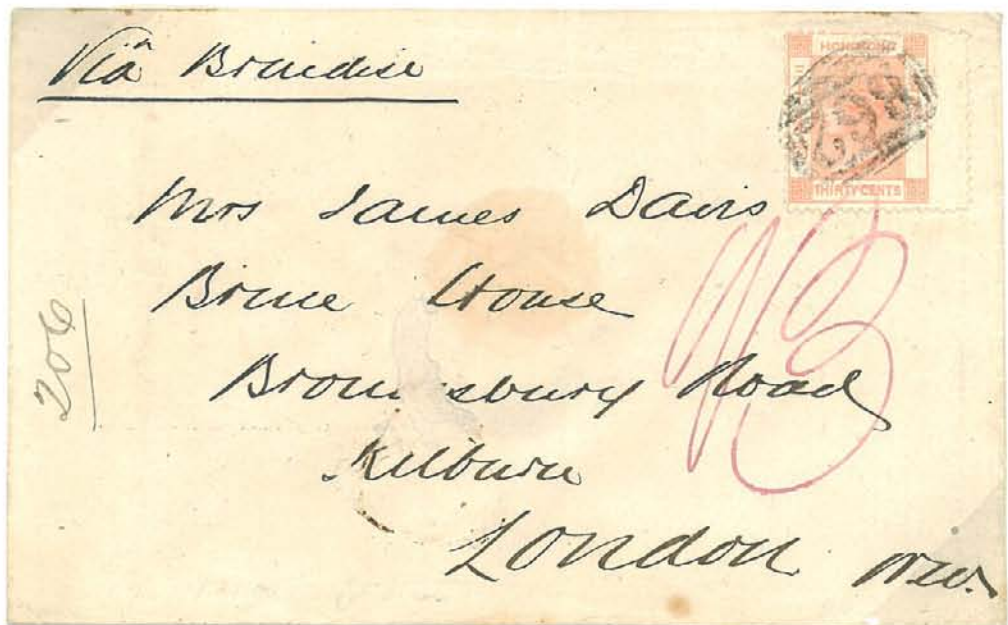 Viâ Brindisi
HONG KONG
THIRTY CENTS
Mrs James Davis
Bruce House
Brondesbury Road
Kilburn
London N.W.
206